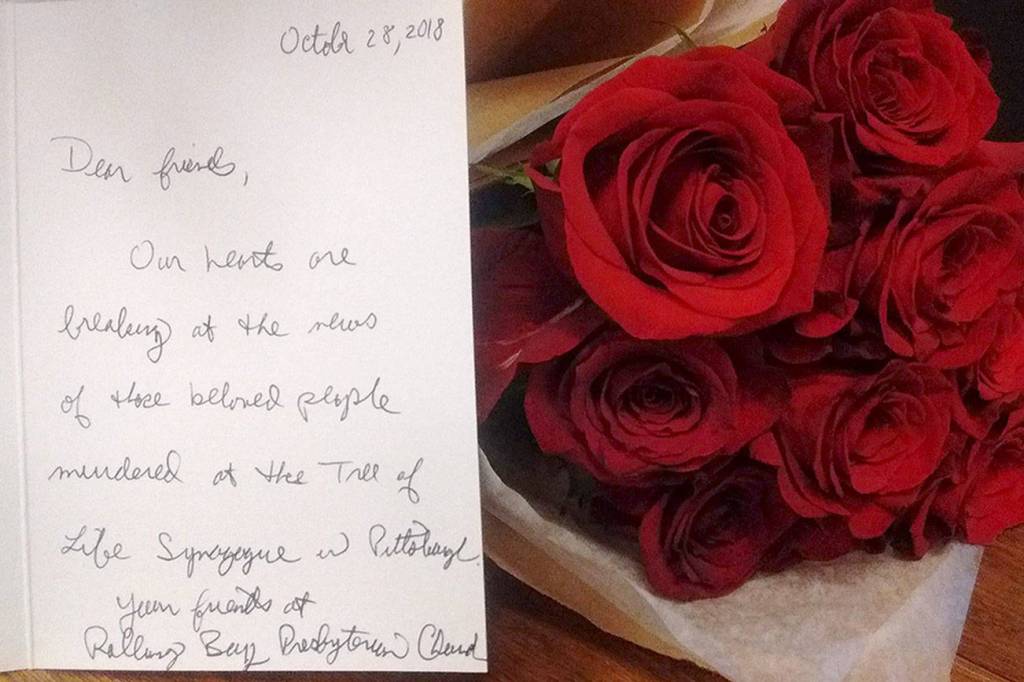 October 28, 2018
Dear friends,
Our hearts are
breaking at the news
of those beloved people
murdered at the Tree of
Life Synagogue in Pittsburgh.
Your friends at
Rolling Bay Presbyterian Church